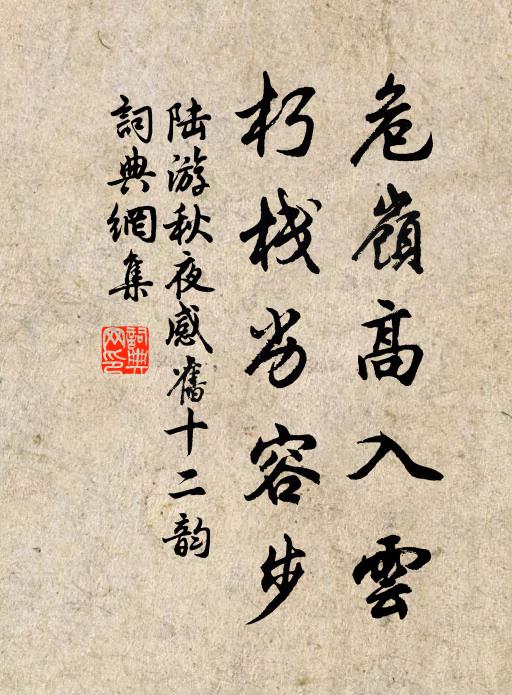 危嶺高入雲
朽栈劣容步
陆游秋夜感舊十二韵
詞典網集
詞典网印